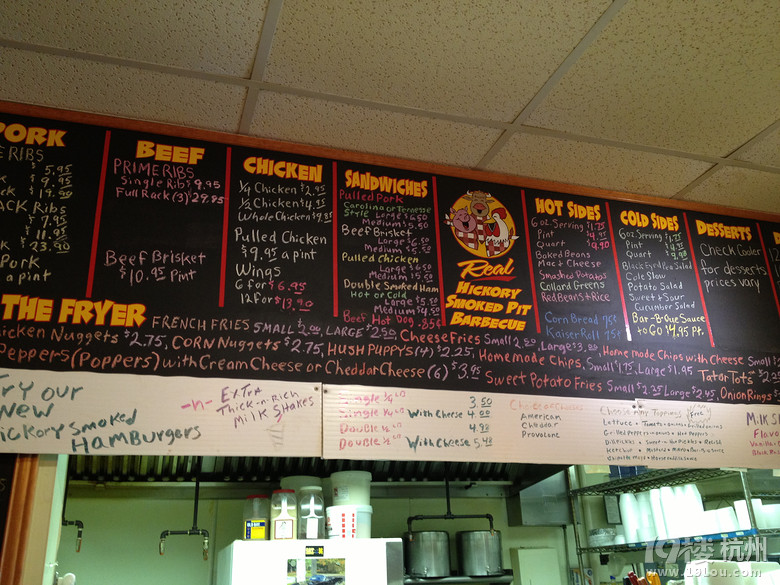 PORK
RIBS
5.95
9.95
19.90
RIBS
7.95
11.95
23.90
Pork
a pint
BEEF
PRIME RIBS
Single Rib $9.95
Full Rack (3) $29.95
Beef Brisket
$10.95 Pint
CHICKEN
1/4 Chicken $2.95
1/2 Chicken $4.95
Whole Chicken $9.95
Pulled Chicken
$9.95 a pint
Wings
6 for $6.95
12 for $13.90
SANDWICHES
Pulled Pork
Carolina or Tennessee
Style Large $6.50
Medium $5.50
Beef Brisket
Large $6.50
Medium $5.50
Pulled Chicken
Large $6.50
Medium $5.50
Double Smoked Ham
Hot or Cold
Large $5.50
Medium $4.50
Beef Hot Dog
Real
HICKORY
SMOKED PIT
BARBECUE
HOT SIDES
6 oz. Serving $1.75
Pint $4.95
Quart $9.90
Baked Beans
Mac & Cheese
Smashed Potatoes
Collard Greens
Red Beans & Rice
Corn Bread 75¢
Kaiser Roll 75¢
COLD SIDES
6 oz Serving $1.75
Pint $4.95
Quart $9.90
Black Eyed Pea Salad
Cole Slaw
Potato Salad
Sweet & Sour
Cucumber Salad
Bar-B-Que Sauce
to Go $4.95 Pt.
DESSERTS
Check Cooler
for desserts
prices vary
THE FRYER
FRENCH FRIES SMALL $2.00, LARGE $2.50, Cheese Fries Small $2.50, Large $3.00, Home made Chips with Cheese Small
Chicken Nuggets $2.75, CORN Nuggets $2.75, HUSH PUPPYS (4) $2.25, Homemade Chips, Small $1.75, Large $1.95 Tater Tots
Peppers (Poppers) with Cream Cheese or Cheddar Cheese (6) $3.95 Sweet Potato Fries Small $2.25 Large $2.45, Onion Rings
Try our
New
Hickory Smoked
HAMBURGERS
-n- Extra
Thick-n-Rich
Milk Shakes
Single 1/4 LB 3.50
Single 1/4 LB With Cheese 4.00
Double 1/2 LB 4.90
Double 1/2 LB With Cheese 5.40
American
Cheddar
Provolone
Choose Any Toppings Free
Lettuce • Tomato
Flavo
19楼 杭州
www.19lou.com